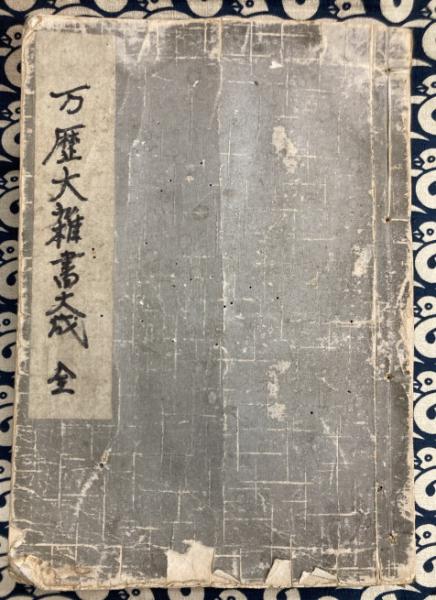 万歴大雑書大成 全